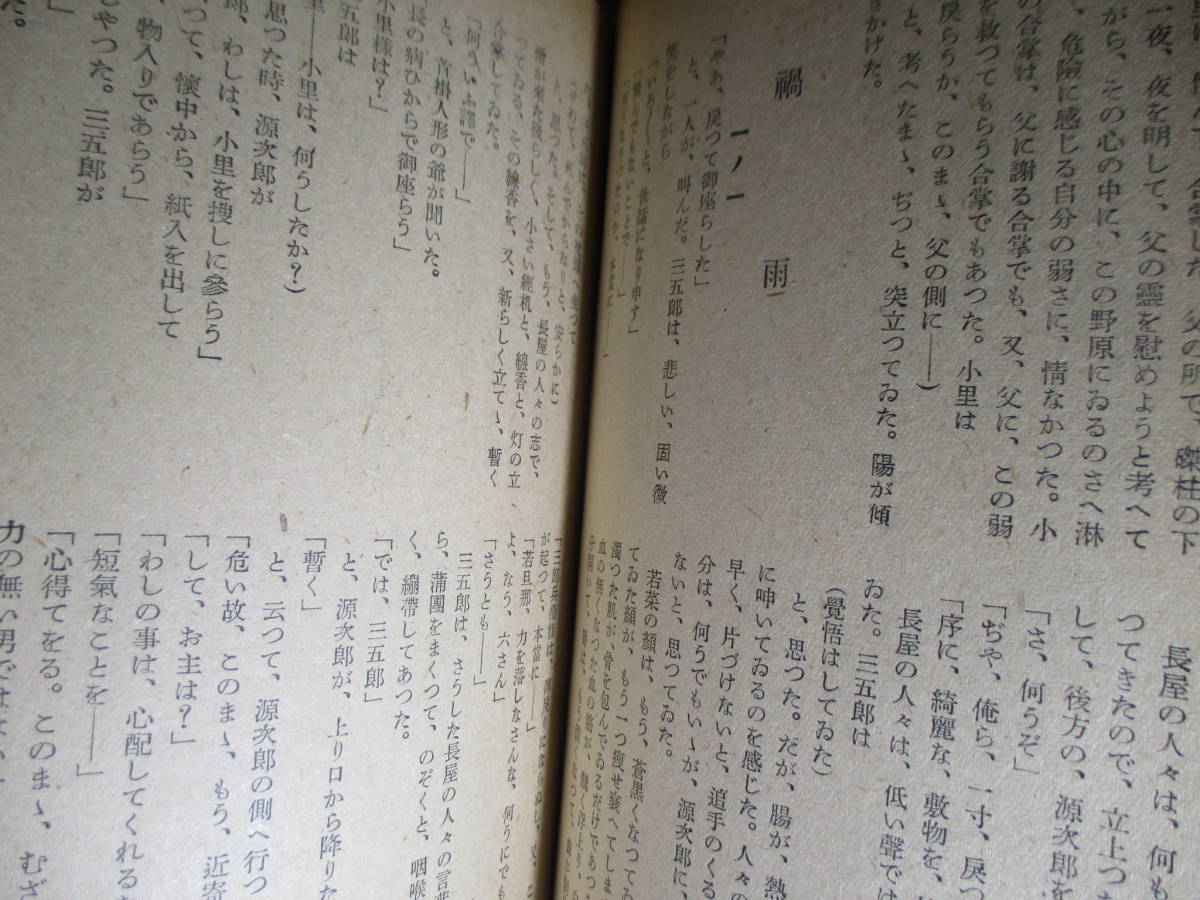 一夜、夜を明して、父の靈を慰めようと考へて
がら、その心の中に、この野原にゐるのさへ淋
、危險に感じる自分の弱さに、情なかつた。小
の合掌は、父に謝る合掌でも、又、父に、この弱
を救つてもらう合掌でもあつた。小里は
戻らうか、このまゝ、父の側に――)
と、考へたまゝ、ぢつと、突立つてゐた。陽が傾
かけた。
禍雨
一ノ一
「やあ、戻つて御座らした」
と、一人が、叫んだ。三五郎は、悲しい、固い微
笑をしながら
「いろ〱と、世話になり申す」
長屋の人々は、何も
つてきたので、立上つた
して、後方の、源次郎を
「さ、何うぞ」
「ぢや、俺ら、一寸、戻つ
「序に、綺麗な、敷物を、
長屋の人々は、低い聲では
おた。三五郎は
(覺悟はしてゐた)
と、思つた。だが、腸が、熱
に呻いてゐるのを感じた。人々の
早く、片づけないと、追手のくる
分は、何うでもいゝが、源次郎に、
ないと、思つてゐた。
若菜の顏は、もう、蒼黒くなつてゐ
てゐた顏が、もう一つ瘦せ衰へてしま
濁つた肌が、骨を包んでゐるだけであつた
と、思つた。そして、もう、長屋の人々の志で、
僧が來た後らしく、小さい經机と、線香と、灯の立
つてゐる、その線香を、又、新らしく立てゝ、暫く
合掌してゐた。
「何ういふ譯で――」
と、首掛人形の爺が聞いた。
長の病ひからで御座らう」
小里樣は?」
五郎は
里――小里は、何うしたか?)
思つた時、源次郎が
郎、わしは、小里を搜しに參らう」
つて、懷中から、紙入を出して
、物入りであらう」
しやつた。三五郎が
た。
が起つて、本當に――」
「若旦那、力を落しなさんな、何うにでも
よ、なう、六さん」
「さうとも――」
三五郎は、さうした長屋の人々の言葉
ら、蒲團をまくつて、のぞくと、咽喉
く、繃帶してあつた。
「では、三五郎」
と、源次郎が、上り口から降りた
「暫く」
と、云つて、源次郎の側へ行つ
「危い故、このまゝ、もう、近寄
「して、お主は?」
「わしの事は、心配してくれるな
「短氣なことを――」
「心得てをる。このまゝ、むざ
力の無い男ではない」